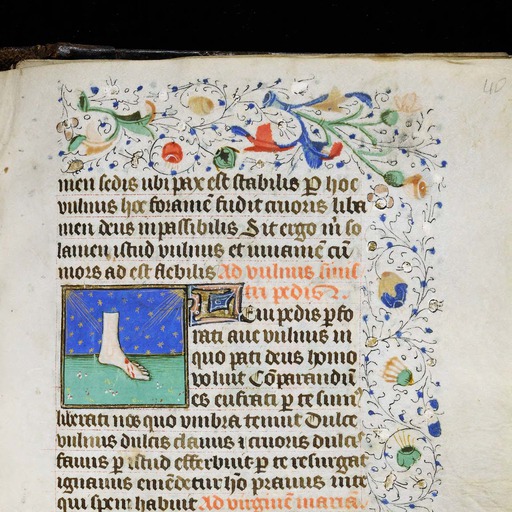 40
men sedis ubi pax est stabilis P hoc
vulnus hoc foramē fudit cruoris liba
men deus inpassibilis Sit ergo m̄ so
lamen istud vulnus et iuuamē cū
mors ad est flebilis Ad vulnus sinis
tri pedis
Leui pedis pfo
rati aue vulnus in
quo pati deus homo
voluit Cōparandū
es eufrati p te sunt
liberati nos quo vmbra tenuit Dulce
vulnus dulcis clauus ⁊ cruoris dulcis
fauus p istud efferbuit p te resurgat
ignauus emēdetur hō prauus inte
qui spem habuit Ad virginē maria